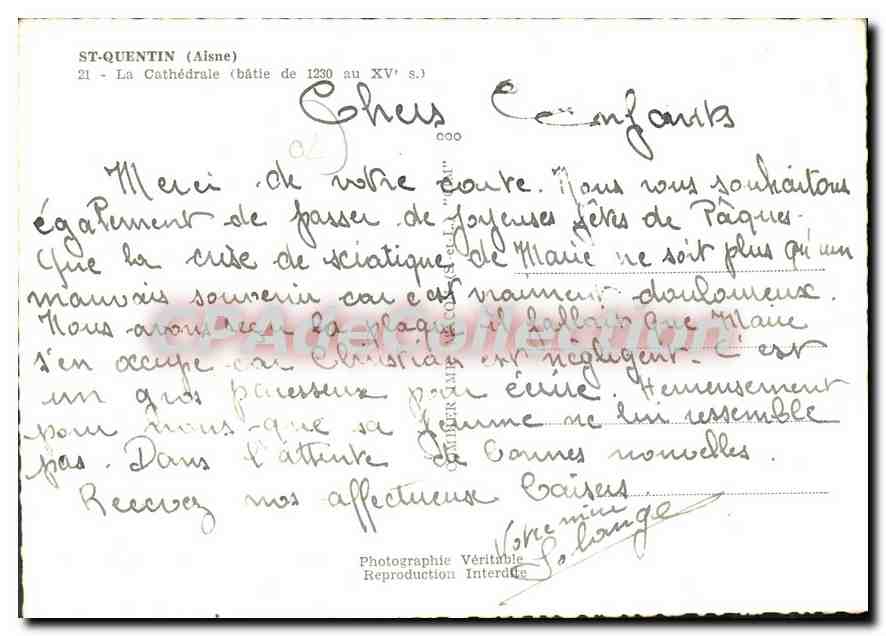 ST-QUENTIN (Aisne)
21 - La Cathédrale (bâtie de 1230 au XVᵉ s.)
Chers Enfants
Merci de votre carte. Nous vous souhaitons
également de passer de joyeuses fêtes de Pâques.
Que la crise de sciatique de Marie ne soit plus qu'un
mauvais souvenir car c'est vraiment douloureux.
Nous avons reçu la plaque il fallait que Marie
s'en occupe car Christian est négligent. C'est
un gros paresseux pour écrire. Heureusement
pour nous que sa femme ne lui ressemble
pas. Dans l'attente de bonnes nouvelles.
Recevez nos affectueux baisers.
Votre mère
Solange
Photographie Véritable
Reproduction Interdite
CPAdeCollection